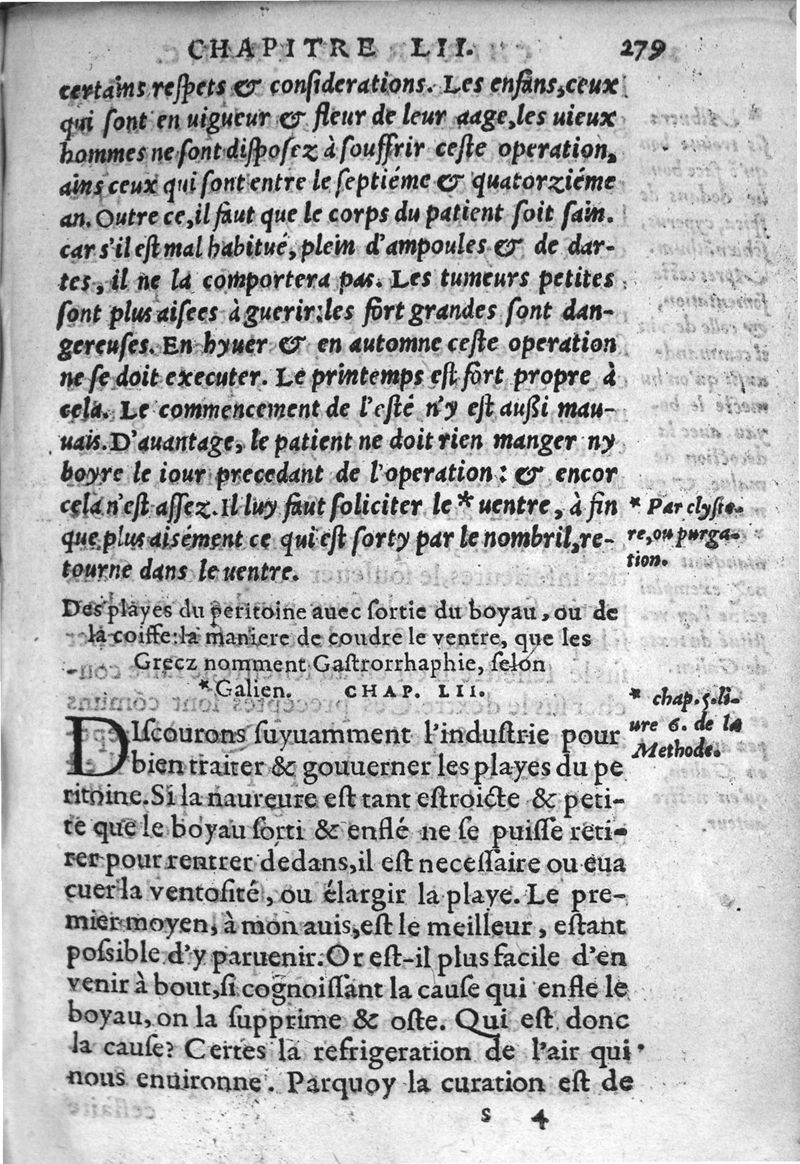 CHAPITRE LII. 279
certains respets & considerations. Les enfans, ceux
qui sont en uigueur & fleur de leur aage, les uieux
hommes ne sont disposez à souffrir ceste operation,
ains ceux qui sont entre le septiéme & quatorziéme
an. Outre ce, il faut que le corps du patient soit sain.
car s'il est mal habitué, plein d'ampoules & de dar-
tes, il ne la comportera pas. Les tumeurs petites
sont plus aisees à guerir: les fort grandes sont dan-
gereuses. En hyuer & en automne ceste operation
ne se doit executer. Le printemps est fort propre à
cela. Le commencement de l'esté n'y est außi mau-
uais. D'auantage, le patient ne doit rien manger ny
boyre le iour precedant de l'operation: & encor
cela n'est assez. Il luy faut soliciter le * uentre, à fin
que plus aisément ce qui est sorty par le nombril, re-
tourne dans le uentre.
* Par clyste-
re, ou purga-
tion.
Des playes du peritoine auec sortie du boyau, ou de
la coiffe: la maniere de coudre le ventre, que les
Grecz nomment Gastrorrhaphie, selon
*Galien. CHAP. LII.
* chap. 5. li-
ure 6. de la
Methode.
DIscourons suyuamment l'industrie pour
bien traiter & gouuerner les playes du pe
ritoine. Si la naureure est tant estroicte & peti-
te que le boyau sorti & enflé ne se puisse reti-
rer pour rentrer dedans, il est necessaire ou eua
cuer la ventosité, ou élargir la playe. Le pre-
mier moyen, à mon auis, est le meilleur, estant
possible d'y paruenir. Or est-il plus facile d'en
venir à bout, si cognoissant la cause qui enfle le
boyau, on la supprime & oste. Qui est donc
la cause? Certes la refrigeration de l'air qui
nous enuironne. Parquoy la curation est de
s 4